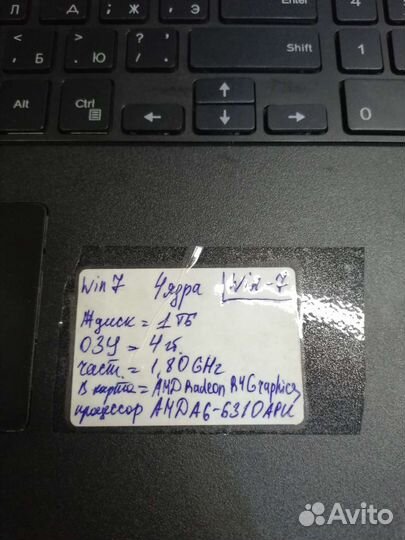 Л Д Ж Э \ Enter 4
< > ? Shift
Б Ю .
Alt Ctrl 0
Win 7 4 ядра Win-7
Ждиск = 1 ТБ
ОЗУ = 4 гб
част = 1,80 GHz
В карта = AMD Radeon R4 Graphics
процессор AMD A6-6310 APU
Avito